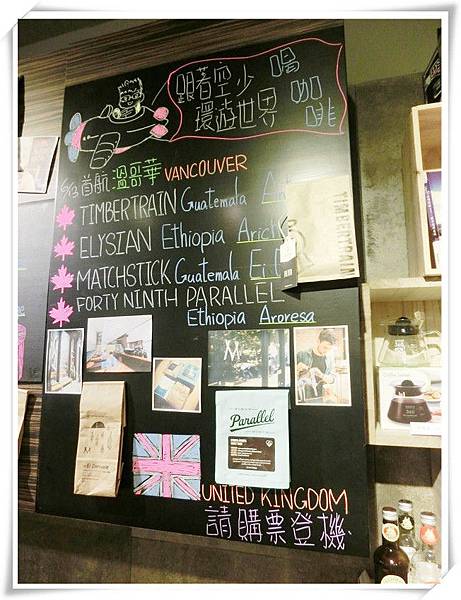 跟著空少 喝咖啡
環遊世界
6/13 首航 溫哥華 VANCOUVER
TIMBERTRAIN Guatemala
ELYSIAN Ethiopia
MATCHSTICK Guatemala
FORTY NINTH PARALLEL
Ethiopia Aroresa
TIMBERTRAIN
M
Parallel
El Dorado
UNITED KINGDOM
請購票登機